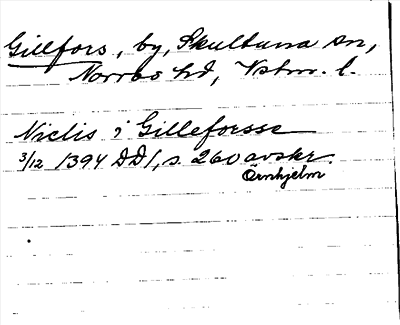 Gillfors, by, Skultuna sn,
Norrbo hd, Vstm. l.
Niclis i Gilleforsse
3/12 1394 DD1, s. 260 avskr.
Örnhjelm